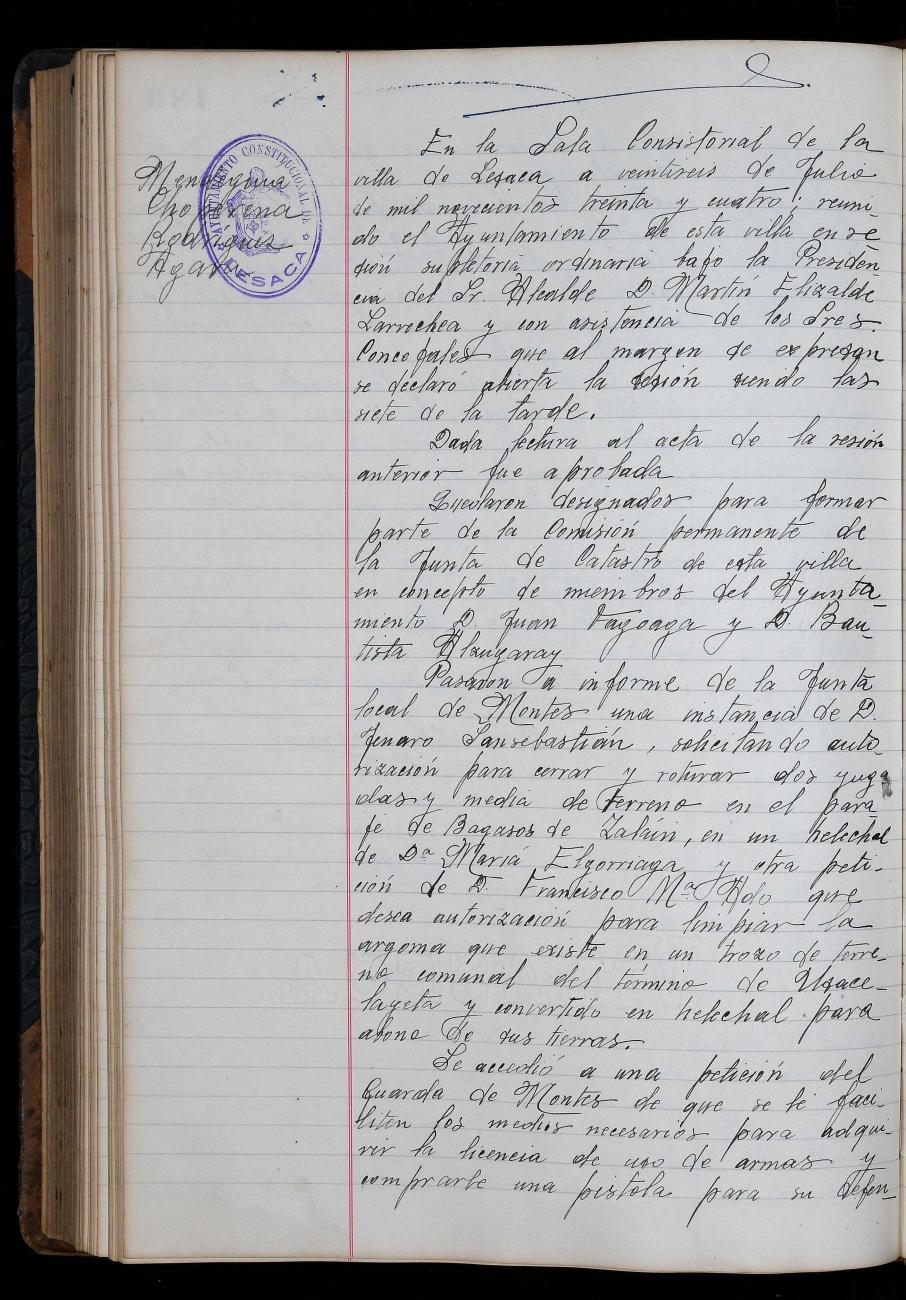 AYUNTAMIENTO CONSTITUCIONAL DE
LESACA
Choperena
Rodriguez
En la Sala Consistorial de la
villa de Lesaca a veintiseis de Julio
de mil novecientos treinta y cuatro: reuni-
do el Ayuntamiento de esta villa en se-
sión supletoria ordinaria bajo la Presiden-
cia del Sr. Alcalde D. Martín Elizalde
Larrochea y con asistencia de los Sres.
Concejales que al margen se expresan
se declaró abierta la sesión siendo las
siete de la tarde.
Dada lectura al acta de la sesión
anterior fue aprobada
designados para formar
parte de la Comisión permanente de
la Junta de Catastro de esta villa
en concepto de miembros del Ayunta-
miento D. Juan Fagoaga y D. Bau-
tista Alzugaray
Pasaron a informe de la Junta
local de Montes una instancia de D.
Jenaro Sansebastián, solicitando auto-
rización para cerrar y roturar dos yuga
das y media de terreno en el para-
je de Bagasos de Zaláin, en un helechal
de Dª Mariá Elgorriaga y otra peti-
ción de D. Francisco Mª que
desea autorización para limpiar la
argoma que existe en un trozo de terre-
no comunal del término de Usace-
layeta y convertido en helechal para
abono de sus tierras.
Se accedió a una petición del
Guarda de Montes de que se le faci-
liten los medios necesarios para adqui-
rir la licencia de uso de armas y
comprarle una pistola para su defen-